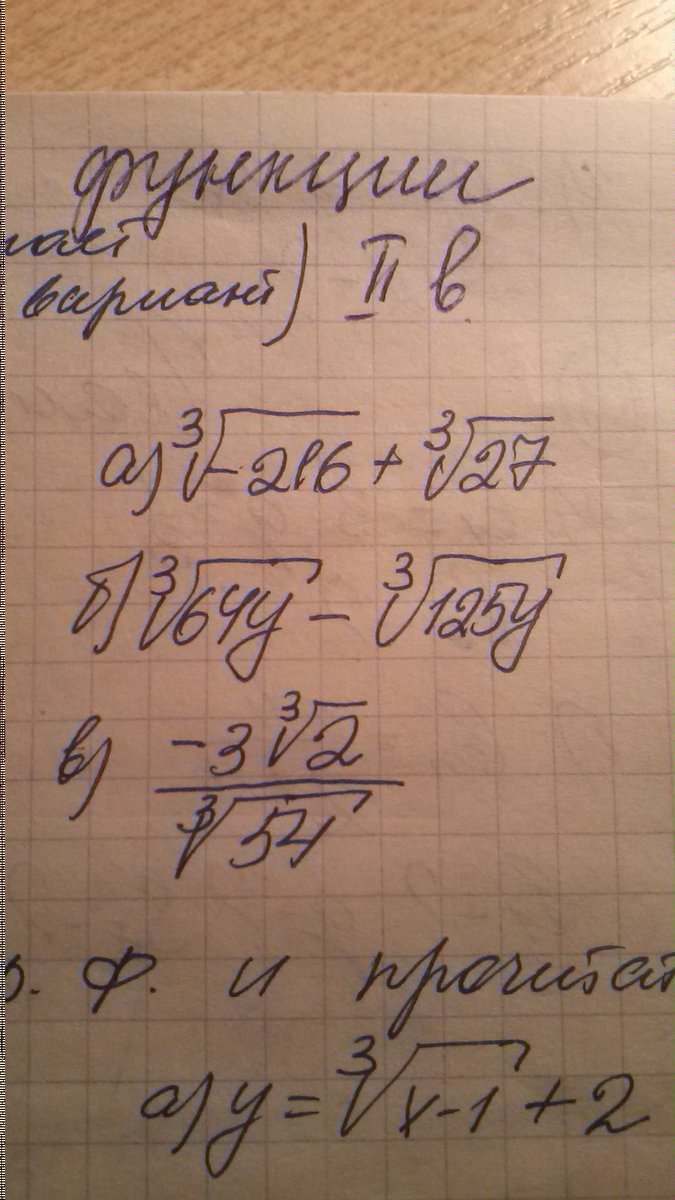 функции
вариант) II в
а) ∛-216 + ∛27
б) ∛64y - ∛125y
в) -3∛2 / ∛54
Ф. и прочитат
а) y = ∛x-1 + 2